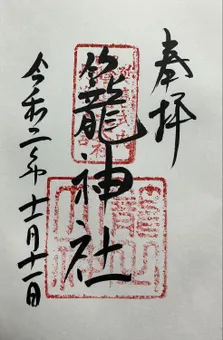 奉拝
籠神社
令和二年十一月十一日